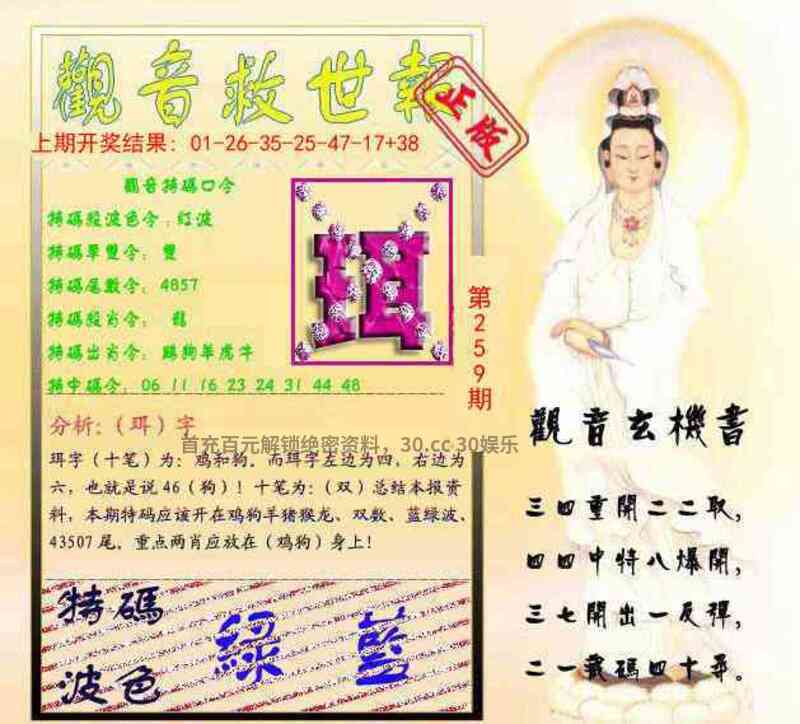 觀音救世報
正版
上期开奖结果：01-26-35-25-47-17+38
觀音特碼口令
特碼殺波色令：紅波
特碼單雙令：雙
特碼尾數令：4857
特碼殺肖令：龍
特碼出肖令：鷄狗羊虎牛
特中碼令：06 11 16 23 24 31 44 48
珥
第259期
分析：（珥）字
首充百元解锁绝密资料，30.cc-30娱乐
珥字（十笔）为：鸡和狗。而珥字左边为四，右边为
六，也就是说46（狗）！十笔为：（双）总结本报资
料，本期特码应该开在鸡狗羊猪猴龙、双数、蓝绿波、
43507尾，重点两肖应放在（鸡狗）身上！
特碼
波色
綠 藍
觀音玄機書
三四重開二二取，
四四中特八爆開，
三七開出一反彈，
二一載碼四十尋。